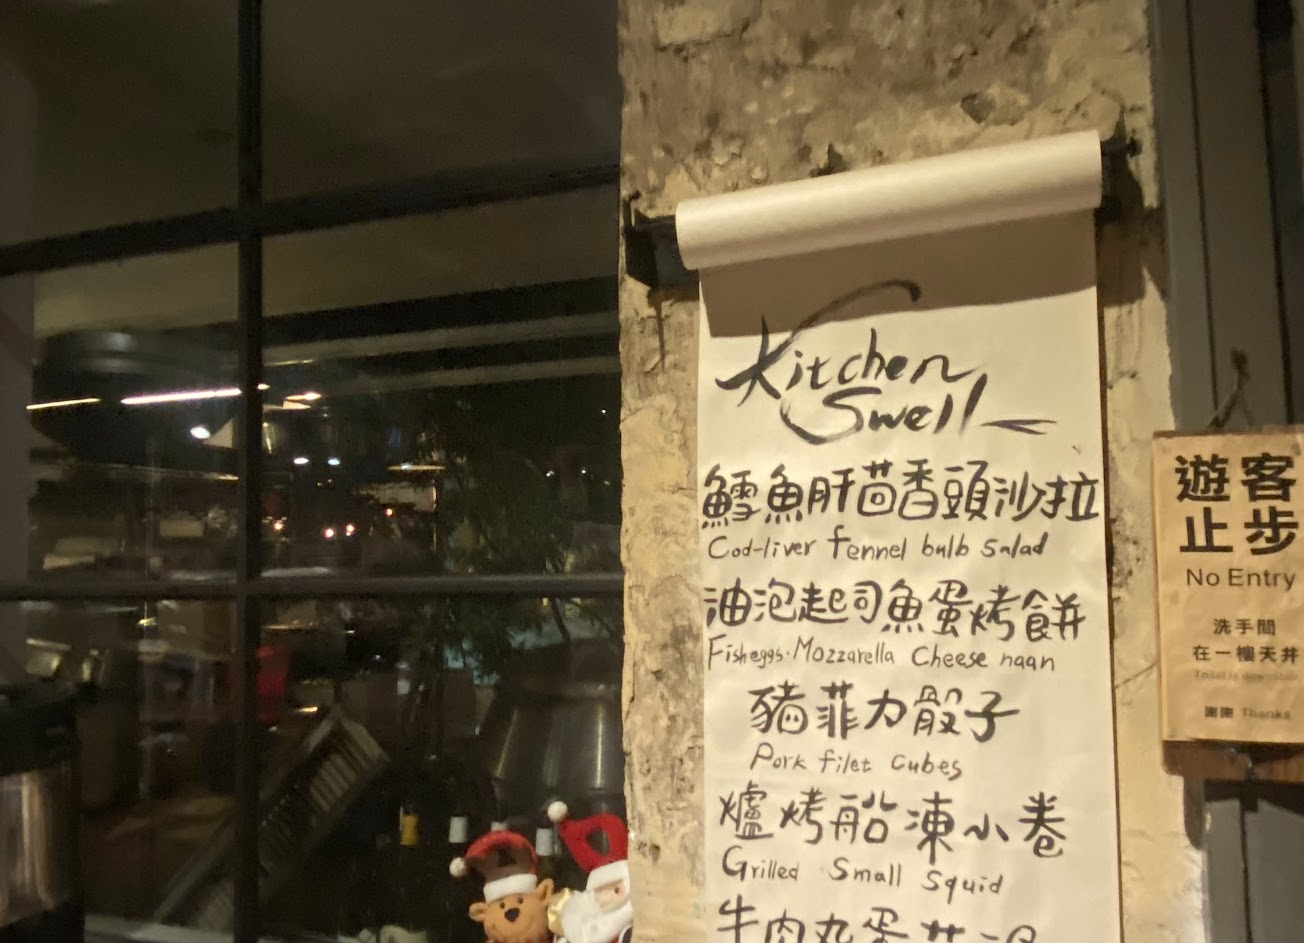 Kitchen
Swell
鱈魚肝茴香頭沙拉
Cod-liver fennel bulb salad
油泡起司魚蛋烤餅
Fisheggs·Mozzarella Cheese naan
豬菲力骰子
Pork filet cubes
爐烤船凍小卷
Grilled Small Squid
牛肉丸蛋
遊客
止步
No Entry
洗手間
在一樓天井
Toilet is downstair
謝謝 Thanks